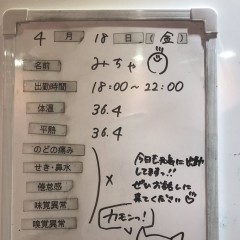 4 月 18 日 (金)
名前 みちゃ
出勤時間 18:00~22:00
体温 36.4
平熱 36.4
のどの痛み
せき・鼻水
倦怠感
味覚異常
味覚異常
×
今日も元気に出勤
してますっ!!
ぜひお話しに
来てください
カモンっ!